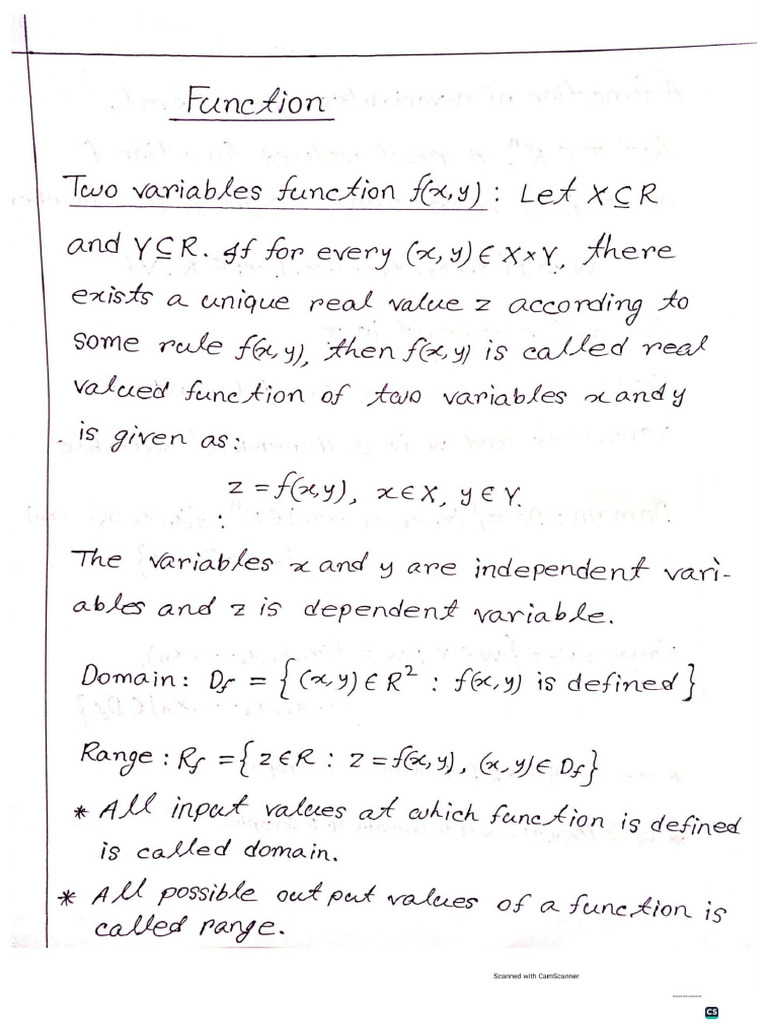 Function
Two variables function f(x,y) : Let X⊆R
and Y⊆R. If for every (x, y) ∈ X×Y, there
exists a unique real value z according to
some rule f(x, y), then f(x, y) is called real
valued function of two variables x and y
is given as:
z = f(x,y), x∈X, y∈Y.
The variables x and y are independent vari-
ables and z is dependent variable.
Domain: Df = {(x,y)∈R² : f(x,y) is defined}
Range : Rf = {z∈R : z = f(x,y), (x,y)∈Df}
* All input values at which function is defined
is called domain.
* All possible out put values of a function is
called range.
Scanned with CamScanner
CS